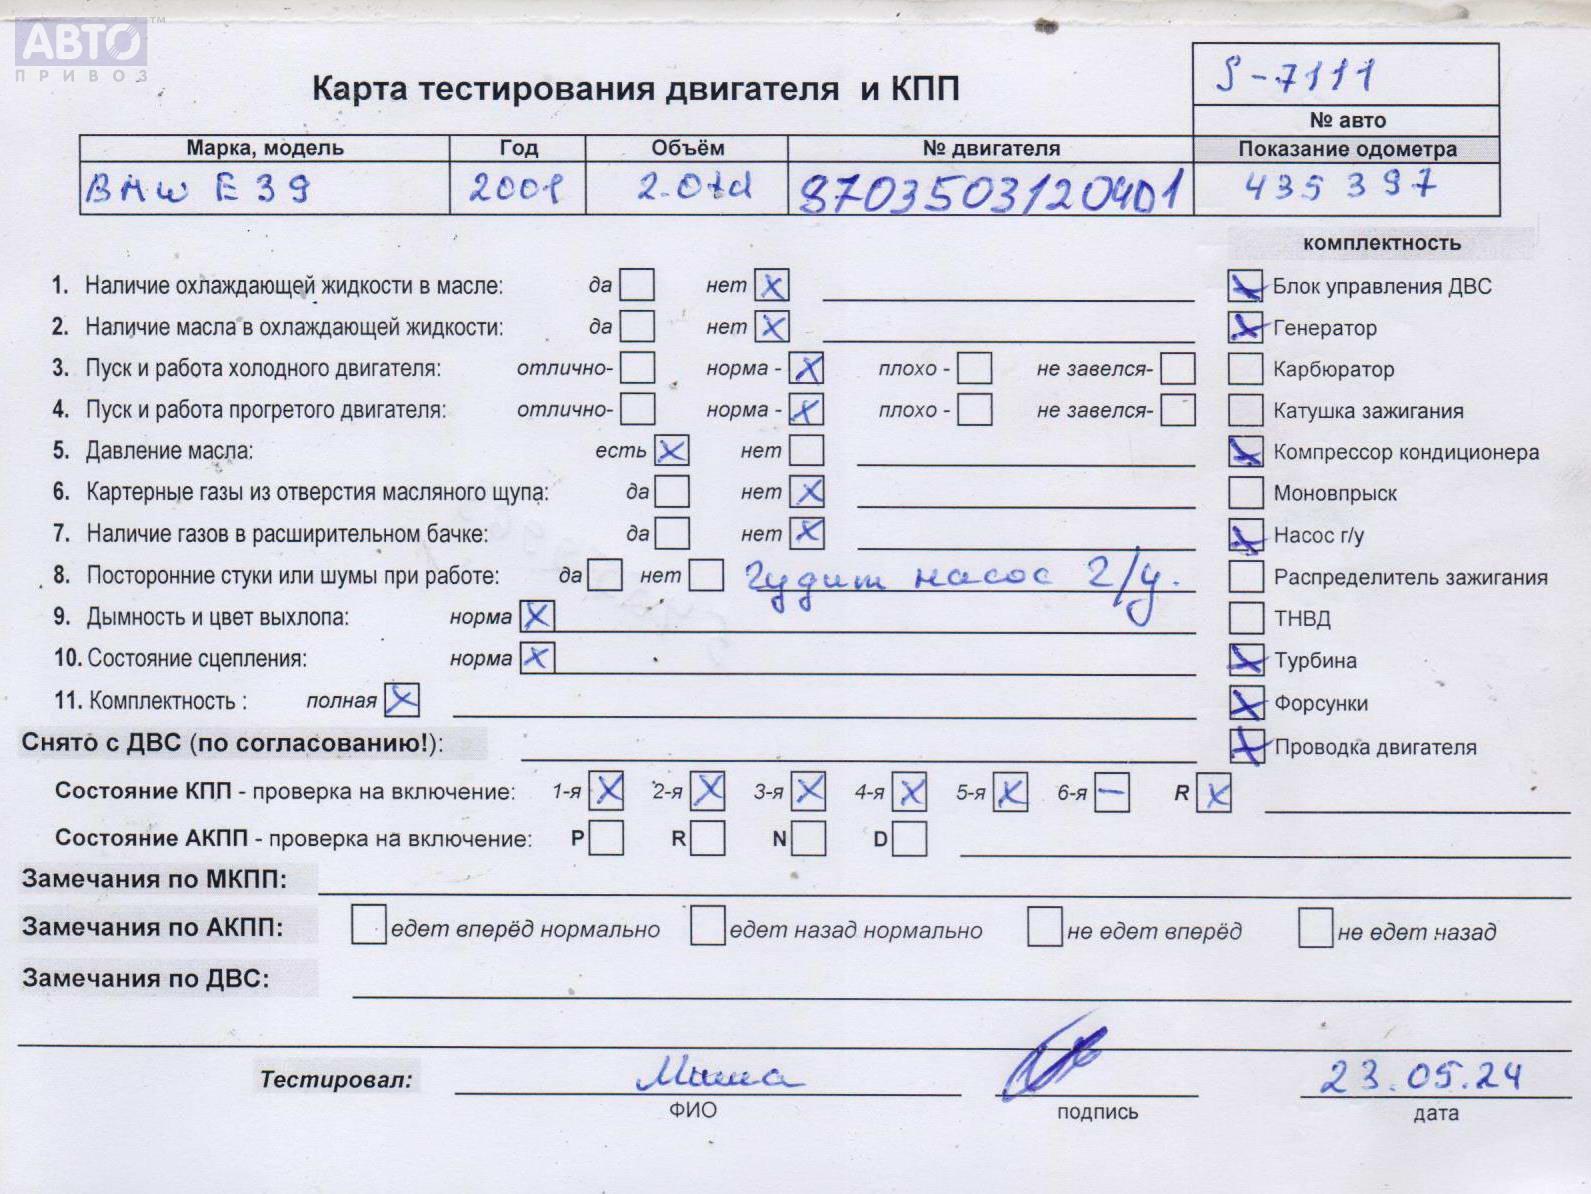 АВТО™
ПРИВОЗ
Карта тестирования двигателя и КПП
S-7111
№ авто
Марка, модель Год Объём № двигателя Показание одометра
BMW E39 2001 2.0td 87035031204D1 435397
комплектность
1. Наличие охлаждающей жидкости в масле: да нет X Блок управления ДВС X
2. Наличие масла в охлаждающей жидкости: да нет X Генератор X
3. Пуск и работа холодного двигателя: отлично- норма - X плохо - не завелся- Карбюратор
4. Пуск и работа прогретого двигателя: отлично- норма - X плохо - не завелся- Катушка зажигания
5. Давление масла: есть X нет X Компрессор кондиционера
6. Картерные газы из отверстия масляного щупа: да нет X Моновпрыск
7. Наличие газов в расширительном бачке: да нет X X Насос г/у
8. Посторонние стуки или шумы при работе: да нет Гудит насос г/у. Распределитель зажигания
9. Дымность и цвет выхлопа: норма X ТНВД
10. Состояние сцепления: норма X X Турбина
11. Комплектность : полная X X Форсунки
Снято с ДВС (по согласованию!): X Проводка двигателя
Состояние КПП - проверка на включение: 1-я X 2-я X 3-я X 4-я X 5-я X 6-я — R X
Состояние АКПП - проверка на включение: P R N D
Замечания по МКПП:
Замечания по АКПП: едет вперёд нормально едет назад нормально не едет вперёд не едет назад
Замечания по ДВС:
Тестировал: Миша 23.05.24
ФИО подпись дата